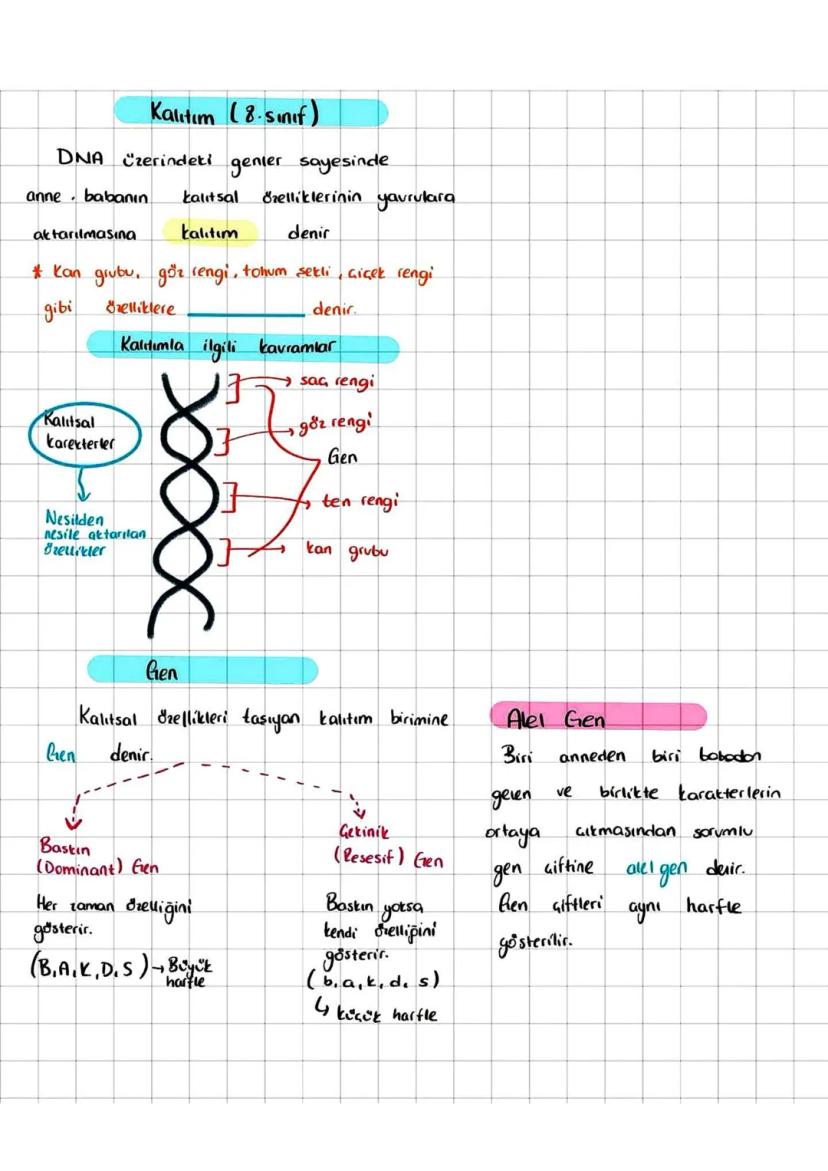 Kalıtım (8.sınıf)
DNA üzerindeki genler sayesinde
anne . babanın kalıtsal özelliklerinin yavrulara
aktarılmasına kalıtım denir
* Kan grubu, göz rengi, tohum şekli, çiçek rengi
gibi özelliklere ________ denir.
Kalıtımla ilgili kavramlar
saç rengi
göz rengi
Gen
ten rengi
kan grubu
Kalıtsal
karekterler
Nesilden
nesile aktarılan
özellikler
Gen
Kalıtsal özellikleri taşıyan kalıtım birimine
Gen denir.
Baskın
(Dominant) Gen
Her zaman özelliğini
gösterir.
(B,A,K,D,S) → Büyük
harfle
Çekinik
(Resesif) Gen
Baskın yoksa
kendi özelliğini
gösterir.
(b,a,k,d,s)
↳ küçük harfle
Alel Gen
Biri anneden biri babadan
gelen ve birlikte karakterlerin
ortaya çıkmasından sorumlu
gen çiftine alel gen denir.
Gen çiftleri aynı harfle
gösterilir.